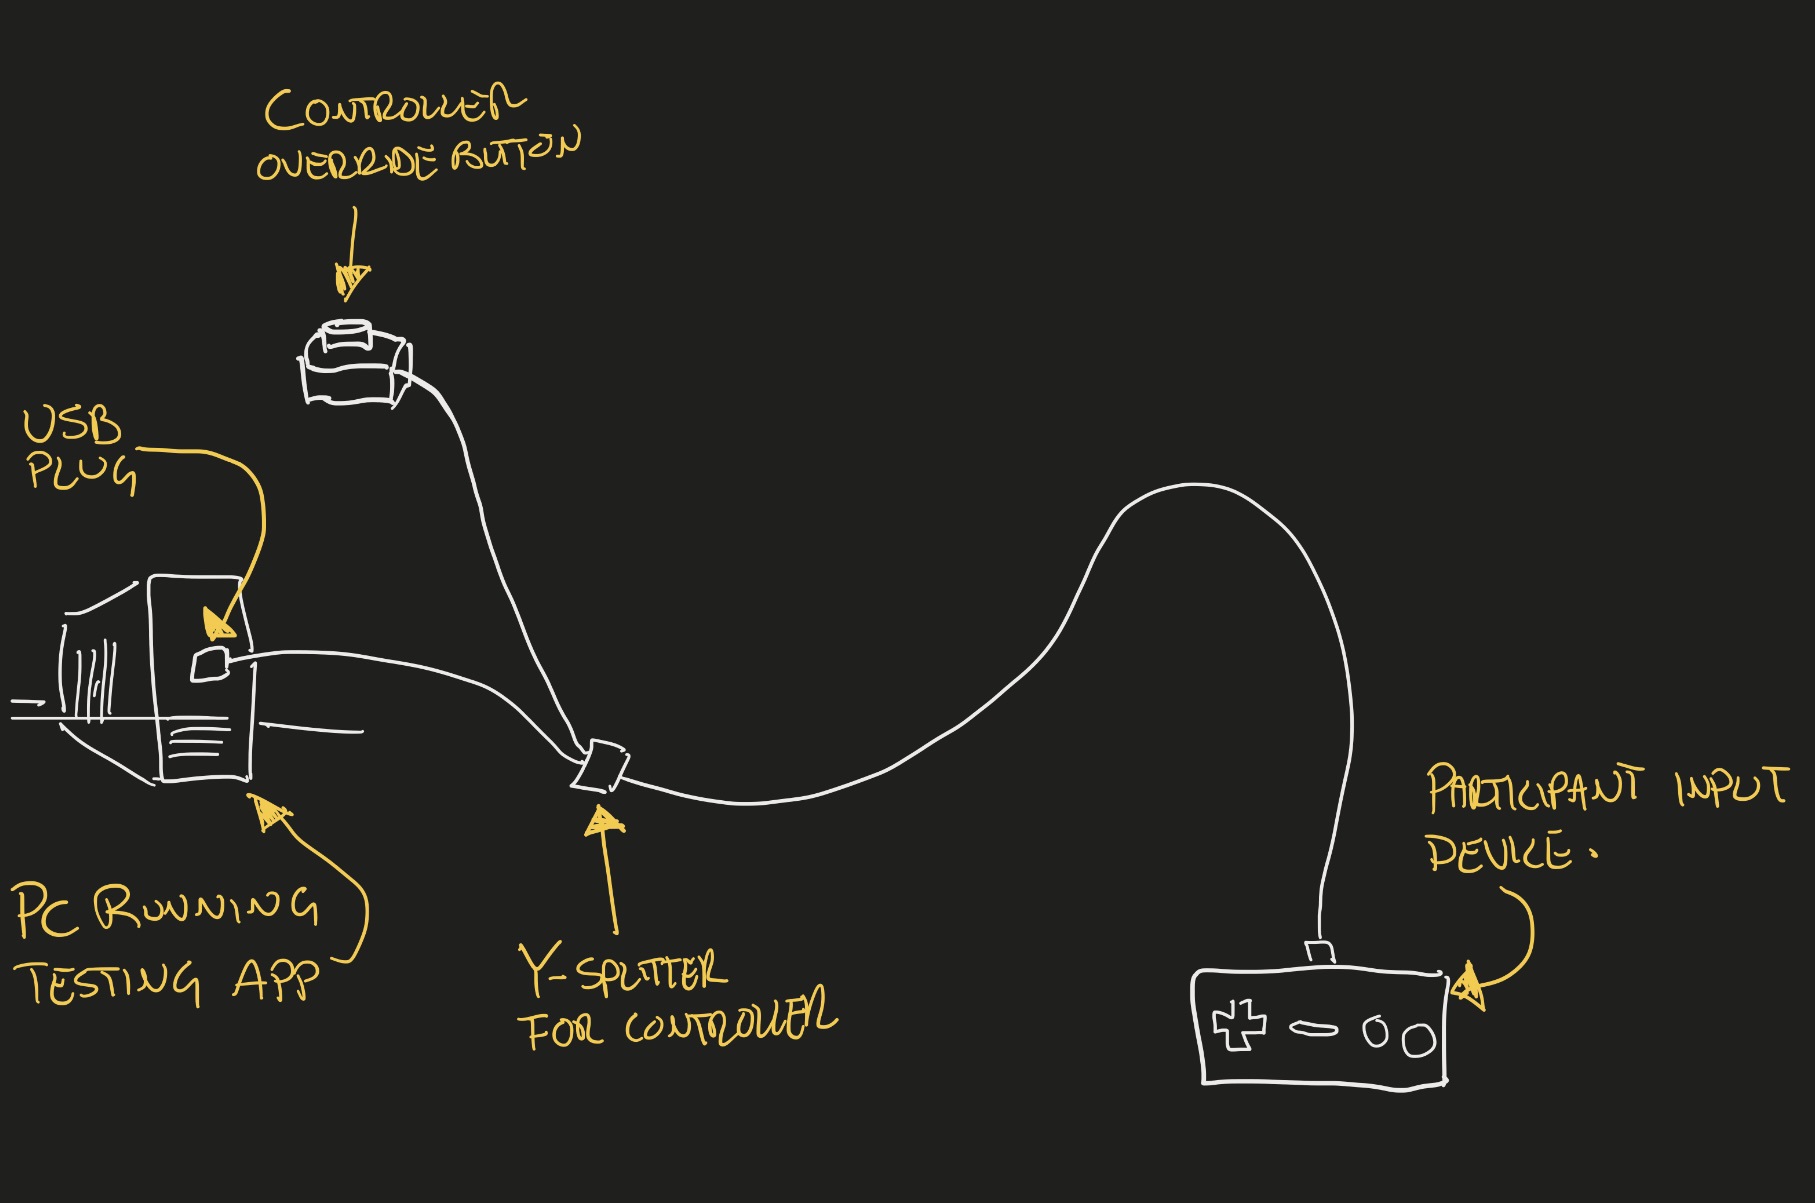 CONTROLLER
OVERRIDE BUTTON
USB
PLUG
PC RUNNING
TESTING APP
Y-SPLITTER
FOR CONTROLLER
PARTICIPANT INPUT
DEVICE.